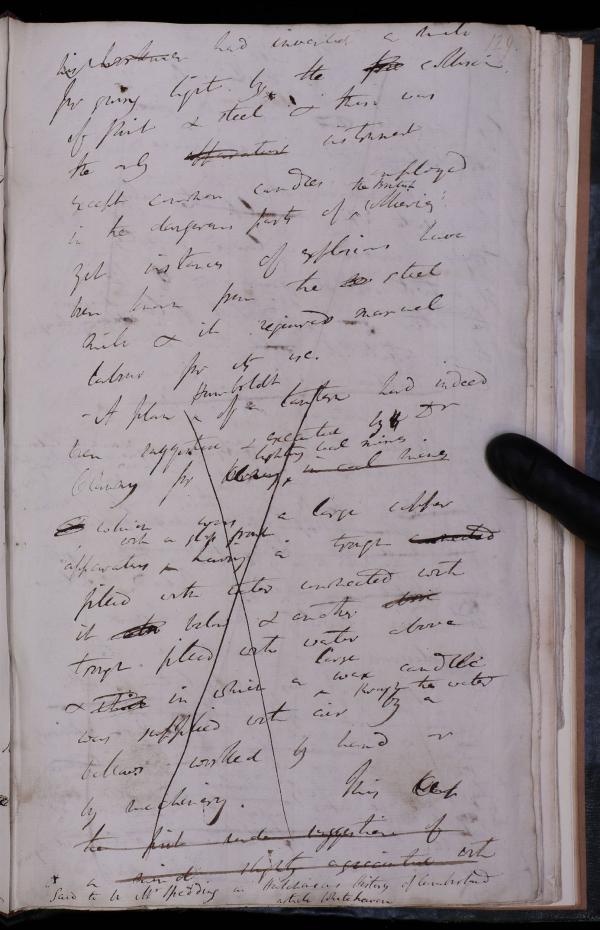 129
had invented a mill
for giving light by the free collision
of flint & steel* & this was
the only apparatus instrument
except common candles employed
in the dangerous parts of the British collieries
yet instances of explosions have
been known from the steel
mill & it required manual
labour for its use.
- A plan Humboldt of a lantern had indeed
been suggested & executed by Dr
Clanny for lighting coal mines in coal mines
which was a large copper
with a stop
apparatus having a trough connected
filled with water connected with
it valve & another
trough filled with water above
& in which a large wax candle
was supplied with air through the water by a
bellows worked by hand or
by machinery. This
the first suggestion of
a mind slightly acquainted with
* Said to be Mr Spedding in Hutchinsons History of Cumberland
article Whitehaven